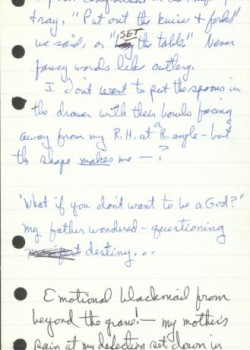 tray. "Put out the knives & forks"
we said, or "SET the table" Never
fancy words like cutlery.
I don't want to put the spoons in
the drawer with their bowls facing
away from my R.H. at R. angle – but
the shape makes me – ?
"What if you don't want to be a God?"
my father wondered – questioning
destiny...
Emotional blackmail from
beyond the grave! – my mother's
pain at my defection set down in